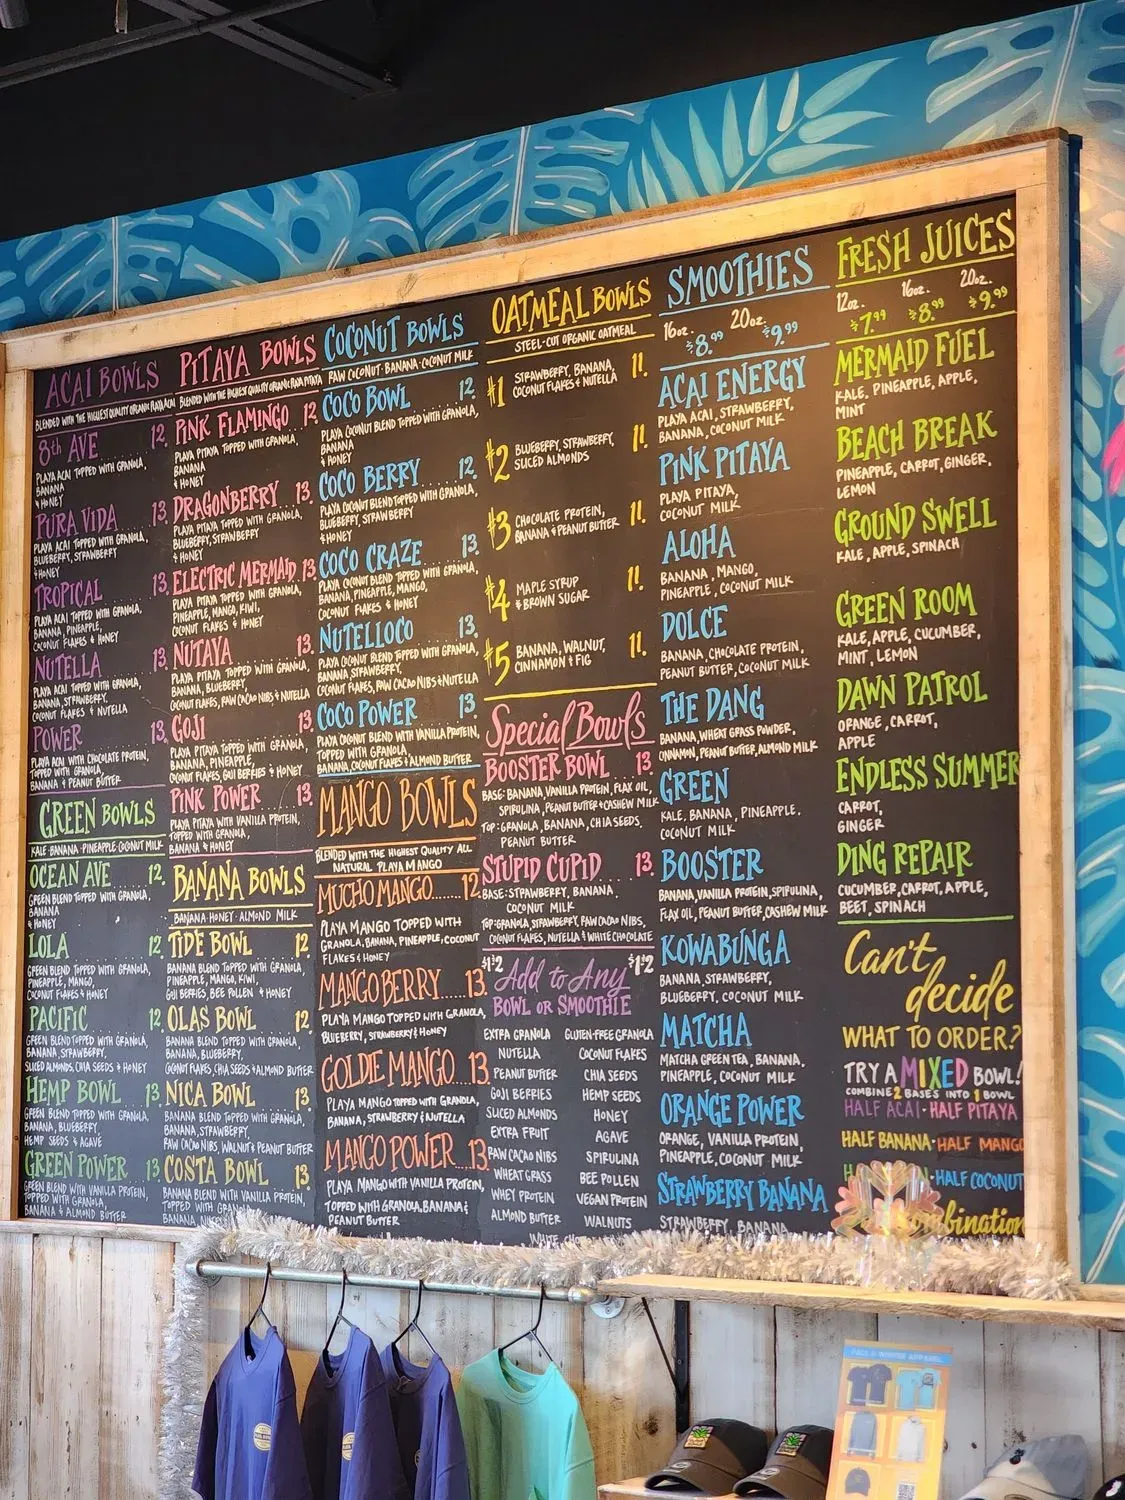 ACAI BOWLS
BLENDED WITH THE HIGHEST QUALITY ORGANIC PLAYA ACAI
8th AVE 12.
PLAYA ACAI TOPPED WITH GRANOLA,
BANANA
& HONEY
PURA VIDA 13.
PLAYA ACAI TOPPED WITH GRANOLA,
BLUEBERRY, STRAWBERRY
& HONEY
TROPICAL 13.
PLAYA ACAI TOPPED WITH GRANOLA,
BANANA, PINEAPPLE,
COCONUT FLAKES & HONEY
NUTELLA 13.
PLAYA ACAI TOPPED WITH GRANOLA,
BANANA, STRAWBERRY,
COCONUT FLAKES & NUTELLA
POWER 13.
PLAYA ACAI WITH CHOCOLATE PROTEIN,
TOPPED WITH GRANOLA,
BANANA & PEANUT BUTTER
GREEN BOWLS
KALE·BANANA·PINEAPPLE·COCONUT MILK
OCEAN AVE 12.
GREEN BLEND TOPPED WITH GRANOLA,
BANANA
& HONEY
LOLA 12.
GREEN BLEND TOPPED WITH GRANOLA,
PINEAPPLE, MANGO,
COCONUT FLAKES & HONEY
PACIFIC 12.
GREEN BLEND TOPPED WITH GRANOLA,
BANANA, STRAWBERRY,
SLICED ALMONDS, CHIA SEEDS & HONEY
HEMP BOWL 13.
GREEN BLEND TOPPED WITH GRANOLA,
BANANA, BLUEBERRY,
HEMP SEEDS & AGAVE
GREEN POWER 13.
GREEN BLEND WITH VANILLA PROTEIN,
TOPPED WITH GRANOLA,
BANANA & ALMOND BUTTER
PITAYA BOWLS
BLENDED WITH THE HIGHEST QUALITY ORGANIC PLAYA PITAYA
PINK FLAMINGO 12.
PLAYA PITAYA TOPPED WITH GRANOLA,
BANANA
& HONEY
DRAGONBERRY 13.
PLAYA PITAYA TOPPED WITH GRANOLA,
BLUEBERRY, STRAWBERRY
& HONEY
ELECTRIC MERMAID 13.
PLAYA PITAYA TOPPED WITH GRANOLA,
PINEAPPLE, MANGO, KIWI,
COCONUT FLAKES & HONEY
NUTAYA 13.
PLAYA PITAYA TOPPED WITH GRANOLA,
BANANA, BLUEBERRY,
COCONUT FLAKES, RAW CACAO NIBS & NUTELLA
GOJI 13.
PLAYA PITAYA TOPPED WITH GRANOLA,
BANANA, PINEAPPLE,
COCONUT FLAKES, GOJI BERRIES & HONEY
PINK POWER 13.
PLAYA PITAYA WITH VANILLA PROTEIN,
TOPPED WITH GRANOLA,
BANANA & HONEY
BANANA BOWLS
BANANA·HONEY·ALMOND MILK
TIDE BOWL 12.
BANANA BLEND TOPPED WITH GRANOLA,
PINEAPPLE, MANGO, KIWI,
GOJI BERRIES, BEE POLLEN & HONEY
OLAS BOWL 12.
BANANA BLEND TOPPED WITH GRANOLA,
BANANA, BLUEBERRY,
COCONUT FLAKES, CHIA SEEDS & ALMOND BUTTER
NICA BOWL 13.
BANANA BLEND TOPPED WITH GRANOLA,
BANANA, STRAWBERRY,
RAW CACAO NIBS, WALNUTS & PEANUT BUTTER
COSTA BOWL 13.
BANANA BLEND WITH VANILLA PROTEIN,
TOPPED WITH GRANOLA,
BANANA
COCONUT BOWLS
RAW COCONUT·BANANA·COCONUT MILK
COCO BOWL 12.
PLAYA COCONUT BLEND TOPPED WITH GRANOLA,
BANANA
& HONEY
COCO BERRY 12.
PLAYA COCONUT BLEND TOPPED WITH GRANOLA,
BLUEBERRY, STRAWBERRY
& HONEY
COCO CRAZE 13.
PLAYA COCONUT BLEND TOPPED WITH GRANOLA,
BANANA, PINEAPPLE, MANGO,
COCONUT FLAKES & HONEY
NUTELLOCO 13.
PLAYA COCONUT BLEND TOPPED WITH GRANOLA,
BANANA, STRAWBERRY,
COCONUT FLAKES, RAW CACAO NIBS & NUTELLA
COCO POWER 13.
PLAYA COCONUT BLEND WITH VANILLA PROTEIN,
TOPPED WITH GRANOLA,
BANANA, COCONUT FLAKES & ALMOND BUTTER
MANGO BOWLS
BLENDED WITH THE HIGHEST QUALITY ALL
NATURAL PLAYA MANGO
MUCHO MANGO 12.
PLAYA MANGO TOPPED WITH
GRANOLA, BANANA, PINEAPPLE, COCONUT
FLAKES & HONEY
MANGO BERRY 13.
PLAYA MANGO TOPPED WITH GRANOLA,
BLUEBERRY, STRAWBERRY & HONEY
GOLDIE MANGO 13.
PLAYA MANGO TOPPED WITH GRANOLA,
BANANA, STRAWBERRY & NUTELLA
MANGO POWER 13.
PLAYA MANGO WITH VANILLA PROTEIN,
TOPPED WITH GRANOLA, BANANA &
PEANUT BUTTER
OATMEAL BOWLS
STEEL-CUT ORGANIC OATMEAL
#1 STRAWBERRY, BANANA, 11.
COCONUT FLAKES & NUTELLA
#2 BLUEBERRY, STRAWBERRY, 11.
SLICED ALMONDS
#3 CHOCOLATE PROTEIN, 11.
BANANA & PEANUT BUTTER
#4 MAPLE SYRUP 11.
& BROWN SUGAR
#5 BANANA, WALNUT, 11.
CINNAMON & FIG
Special Bowls
BOOSTER BOWL 13.
BASE: BANANA, VANILLA PROTEIN, FLAX OIL,
SPIRULINA, PEANUT BUTTER & CASHEW MILK
TOP: GRANOLA, BANANA, CHIA SEEDS,
PEANUT BUTTER
STUPID CUPID 13.
BASE: STRAWBERRY, BANANA
COCONUT MILK
TOP: GRANOLA, STRAWBERRY, RAW CACAO NIBS,
COCONUT FLAKES, NUTELLA & WHITE CHOCOLATE
$1-2 Add to Any $1-2
BOWL OR SMOOTHIE
EXTRA GRANOLA GLUTEN-FREE GRANOLA
NUTELLA COCONUT FLAKES
PEANUT BUTTER CHIA SEEDS
GOJI BERRIES HEMP SEEDS
SLICED ALMONDS HONEY
EXTRA FRUIT AGAVE
RAW CACAO NIBS SPIRULINA
WHEAT GRASS BEE POLLEN
WHEY PROTEIN VEGAN PROTEIN
ALMOND BUTTER WALNUTS
WHITE
SMOOTHIES
16oz. $8.99 20oz. $9.99
ACAI ENERGY
PLAYA ACAI, STRAWBERRY,
BANANA, COCONUT MILK
PINK PITAYA
PLAYA PITAYA,
COCONUT MILK
ALOHA
BANANA, MANGO,
PINEAPPLE, COCONUT MILK
DOLCE
BANANA, CHOCOLATE PROTEIN,
PEANUT BUTTER, COCONUT MILK
THE DANG
BANANA, WHEAT GRASS POWDER,
CINNAMON, PEANUT BUTTER, ALMOND MILK
GREEN
KALE, BANANA, PINEAPPLE,
COCONUT MILK
BOOSTER
BANANA, VANILLA PROTEIN, SPIRULINA,
FLAX OIL, PEANUT BUTTER, CASHEW MILK
KOWABUNGA
BANANA, STRAWBERRY,
BLUEBERRY, COCONUT MILK
MATCHA
MATCHA GREEN TEA, BANANA,
PINEAPPLE, COCONUT MILK
ORANGE POWER
ORANGE, VANILLA PROTEIN,
PINEAPPLE, COCONUT MILK
STRAWBERRY BANANA
STRAWBERRY, BANANA
FRESH JUICES
12oz. $7.99 16oz. $8.99 20oz. $9.99
MERMAID FUEL
KALE, PINEAPPLE, APPLE,
MINT
BEACH BREAK
PINEAPPLE, CARROT, GINGER,
LEMON
GROUND SWELL
KALE, APPLE, SPINACH
GREEN ROOM
KALE, APPLE, CUCUMBER,
MINT, LEMON
DAWN PATROL
ORANGE, CARROT,
APPLE
ENDLESS SUMMER
CARROT,
GINGER
DING REPAIR
CUCUMBER, CARROT, APPLE,
BEET, SPINACH
Can't
decide
WHAT TO ORDER?
TRY A MIXED BOWL!
COMBINE 2 BASES INTO 1 BOWL
HALF ACAI·HALF PITAYA
HALF BANANA·HALF MANGO
·HALF COCONUT
FALL & WINTER APPAREL